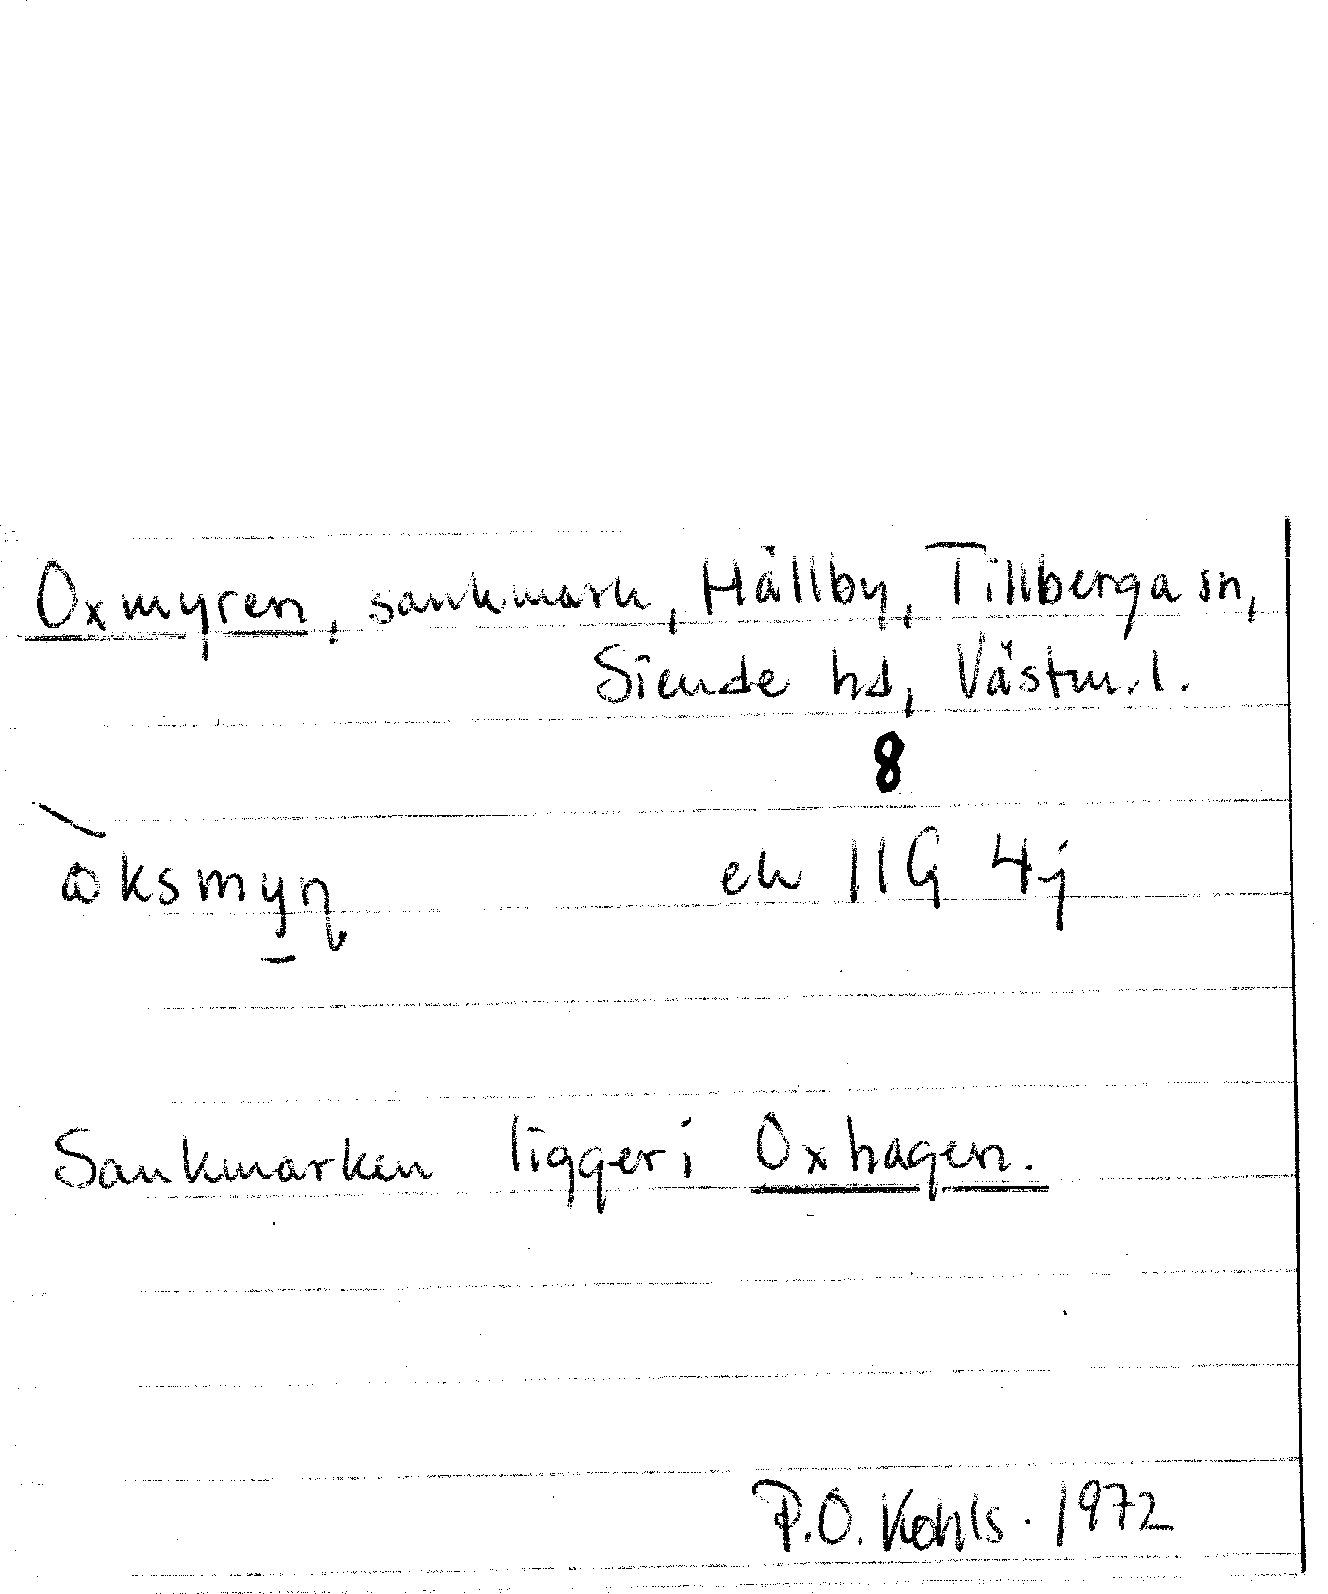 Oxmyren, sankmark, Hällby, Tillberga sn,
Siende hd, Västm. l.
8
ek 11G 4j
Sankmarken ligger i Oxhagen.
P.O. Kohls. 1972